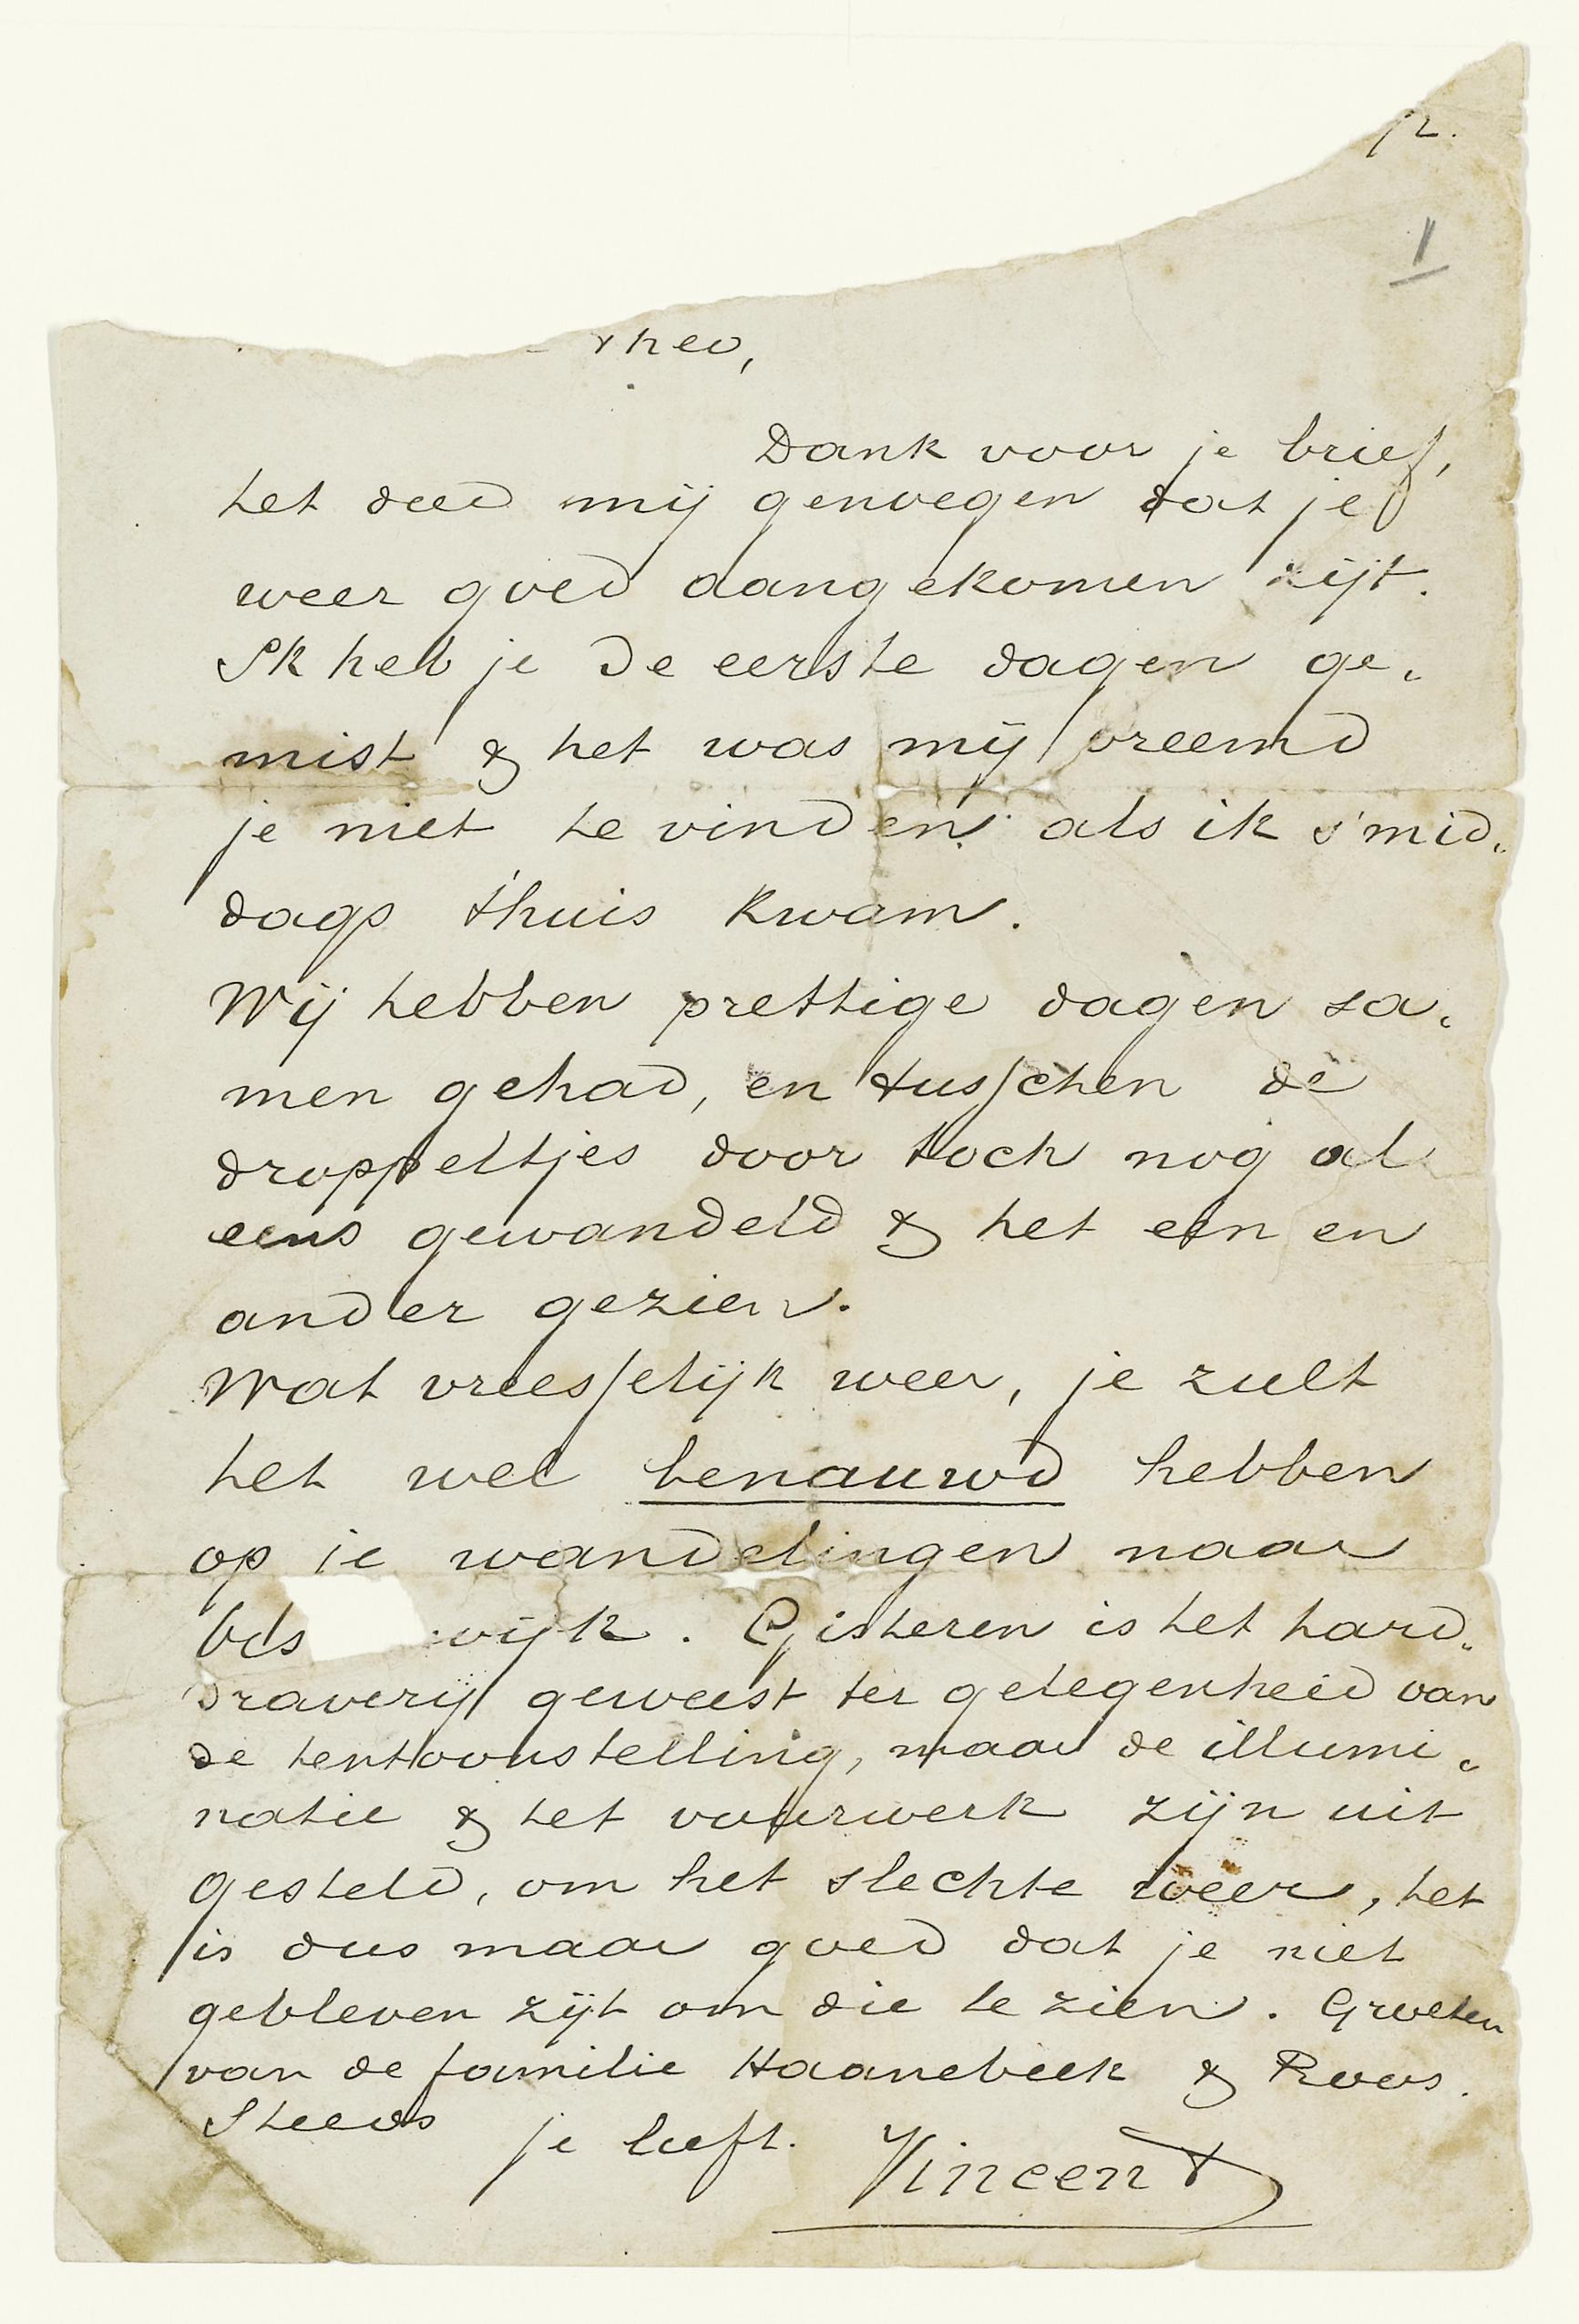 72.
1
Theo,
Dank voor je brief,
het deed mij genoegen dat je
weer goed aangekomen zijt.
Ik heb je de eerste dagen ge-
mist & het was mij vreemd
je niet te vinden als ik s'mid-
dags t'huis kwam.
Wij hebben prettige dagen sa-
men gehad, en tusschen de
droppeltjes door toch nog al
eens gewandeld & het een en
ander gezien.
Wat vreesselijk weer, je zult
het wel benauwd hebben
op je wandelingen naar
wijk. Gisteren is het hard-
draverij geweest ter gelegenheid van
de tentoonstelling, maar de illumi-
natie & het vuurwerk zijn uit
gesteld, om het slechte weer, het
is dus maar goed dat je niet
gebleven zijt om die te zien. Groeten
van de familie Haanebeek & Roos.
Steeds
je liefh.
Vincent